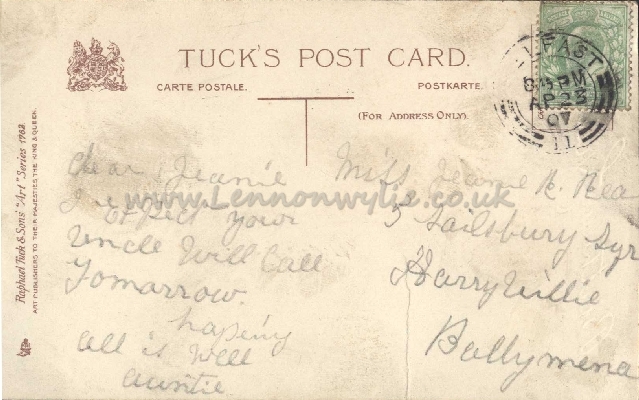 TUCK'S POST CARD.
CARTE POSTALE. POSTKARTE.
(FOR ADDRESS ONLY).
Raphael Tuck & Sons' "Art" Series 1762.
ART PUBLISHERS TO THEIR MAJESTIES THE KING & QUEEN.
ELFAST
PM
AP 23
07
11
www.Lennonwylie.co.uk
Dear Jeanie
I expect your
Uncle Will Call
Tomarrow.
hopeing
all is Well
Auntie
Miss Jeanie R. Rea
5 Sailsbury Sqr
Harryville
Ballymena